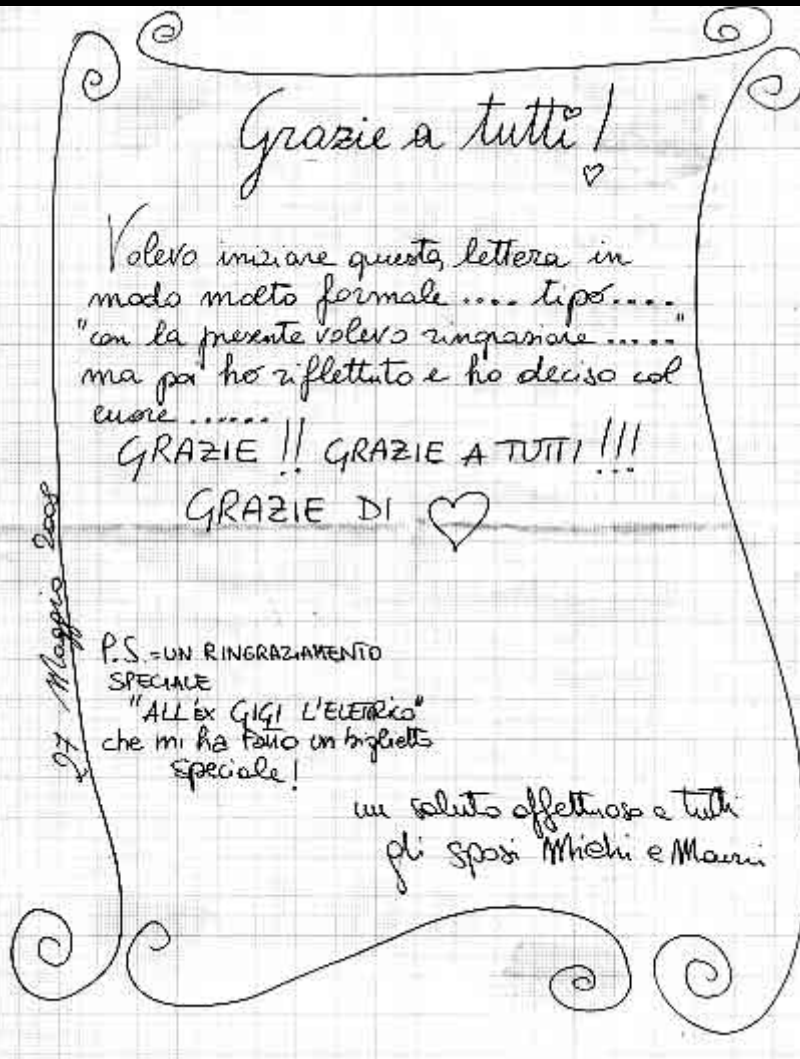 Grazie a tutti!
Volevo iniziare questa lettera in
modo molto formale .... tipo....
"con la presente volevo ringraziare ....."
ma poi ho riflettuto e ho deciso col
cuore ......
GRAZIE !! GRAZIE A TUTTI !!!
GRAZIE DI
27 Maggio 2008
P.S.=UN RINGRAZIAMENTO
SPECIALE
"ALL'EX GIGI L'ELETRICO"
che mi ha fatto un biglietto
speciale!
un saluto affettuoso a tutti
gli sposi Michi e Mauri